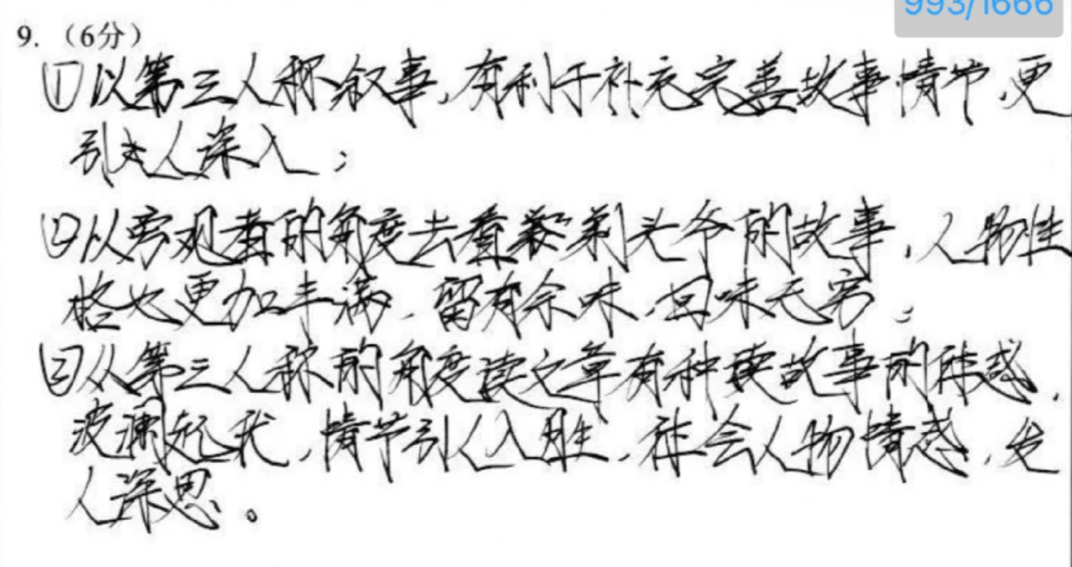 993/1666
9.（6分）
①以第三人称叙事,有利于补充完善故事情节,更
引人深入;
②以旁观者的角度去看剃头爷的故事,人物性
格也更加丰满,留有余味,回味无穷;
③从第三人称的角度读文章有种读故事的体感,
波澜起伏,情节引人入胜,体会人物情感,发
人深思。